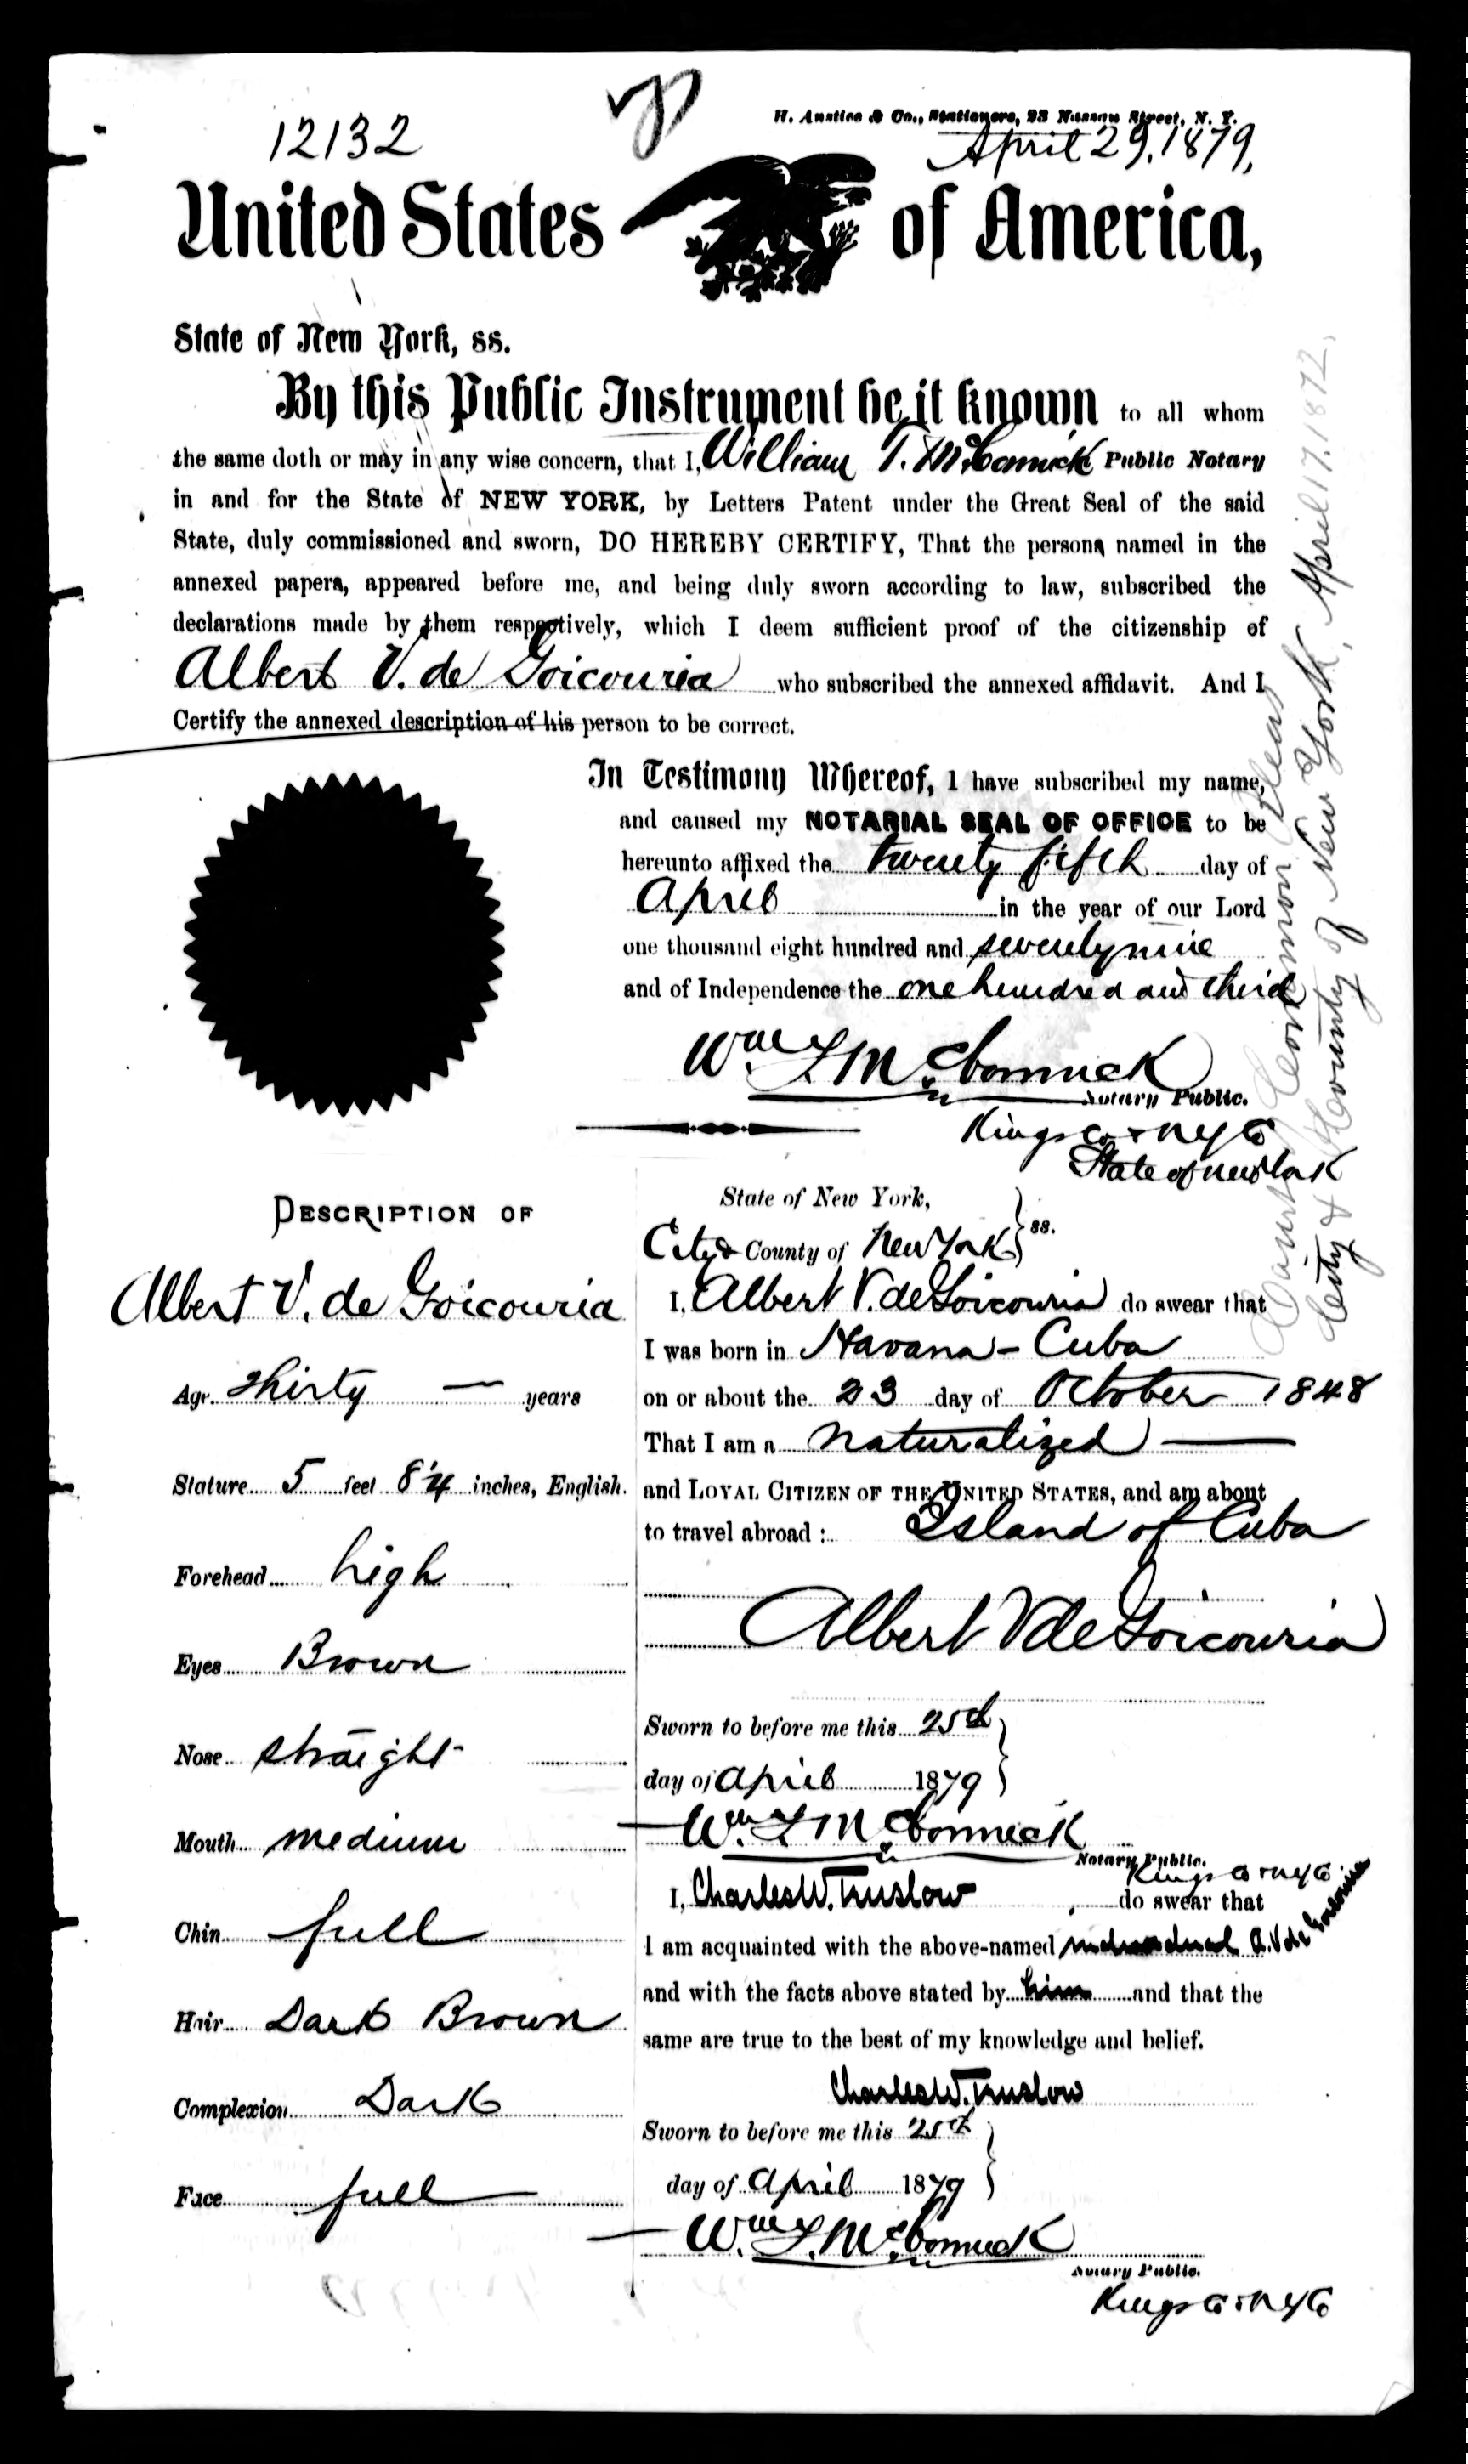 12132
H. Anstice & Co., Stationers, 23 Nassau Street, N. Y.
April 29, 1879,
United States of America,
State of New York, ss.
By this Public Instrument be it known to all whom
the same doth or may in any wise concern, that I, William T. McCormick Public Notary
in and for the State of NEW YORK, by Letters Patent under the Great Seal of the said
State, duly commissioned and sworn, DO HEREBY CERTIFY, That the persons named in the
annexed papers, appeared before me, and being duly sworn according to law, subscribed the
declarations made by them respectively, which I deem sufficient proof of the citizenship of
Albert V. de Goicouria who subscribed the annexed affidavit. And I
Certify the annexed description of his person to be correct.
In Testimony Whereof, I have subscribed my name,
and caused my NOTARIAL SEAL OF OFFICE to be
hereunto affixed the twenty fifth day of
April in the year of our Lord
one thousand eight hundred and seventy nine
and of Independence the one hundred and third
Wm. T. McCormick
Notary Public.
Kings Co & N Y Co
State of New York
Court of Common Pleas
City & County of New York, April 17, 1872,
DESCRIPTION OF
Albert V. de Goicouria
Age thirty — years
Stature 5 feet 8 1/4 inches, English.
Forehead high
Eyes Brown
Nose straight
Mouth medium
Chin full
Hair Dark Brown
Complexion Dark
Face full
State of New York,
City & County of New York } ss.
I, Albert V. de Goicouria do swear that
I was born in Havana - Cuba
on or about the 23 day of October 1848
That I am a naturalized —
and LOYAL CITIZEN OF THE UNITED STATES, and am about
to travel abroad : Island of Cuba
Albert V de Goicouria
Sworn to before me this 25th
day of April 1879
Wm. T. McCormick
Notary Public.
Kings Co & N Y Co
I, Charles W. Truslow do swear that
I am acquainted with the above-named individual A. V. de Goicouria
and with the facts above stated by him and that the
same are true to the best of my knowledge and belief.
Charles W. Truslow
Sworn to before me this 25th
day of April 1879
Wm. T. McCormick
Notary Public.
Kings Co & N Y Co